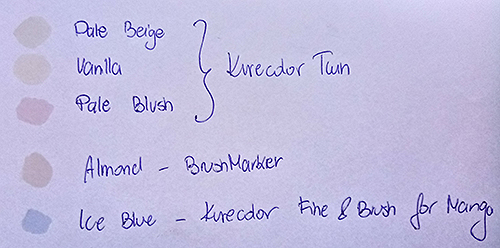 Pale Beige
Vanilla
Pale Blush
Kurecolor Twin
Almond - BrushMarker
Ice Blue - Kurecolor Fine & Brush for Manga